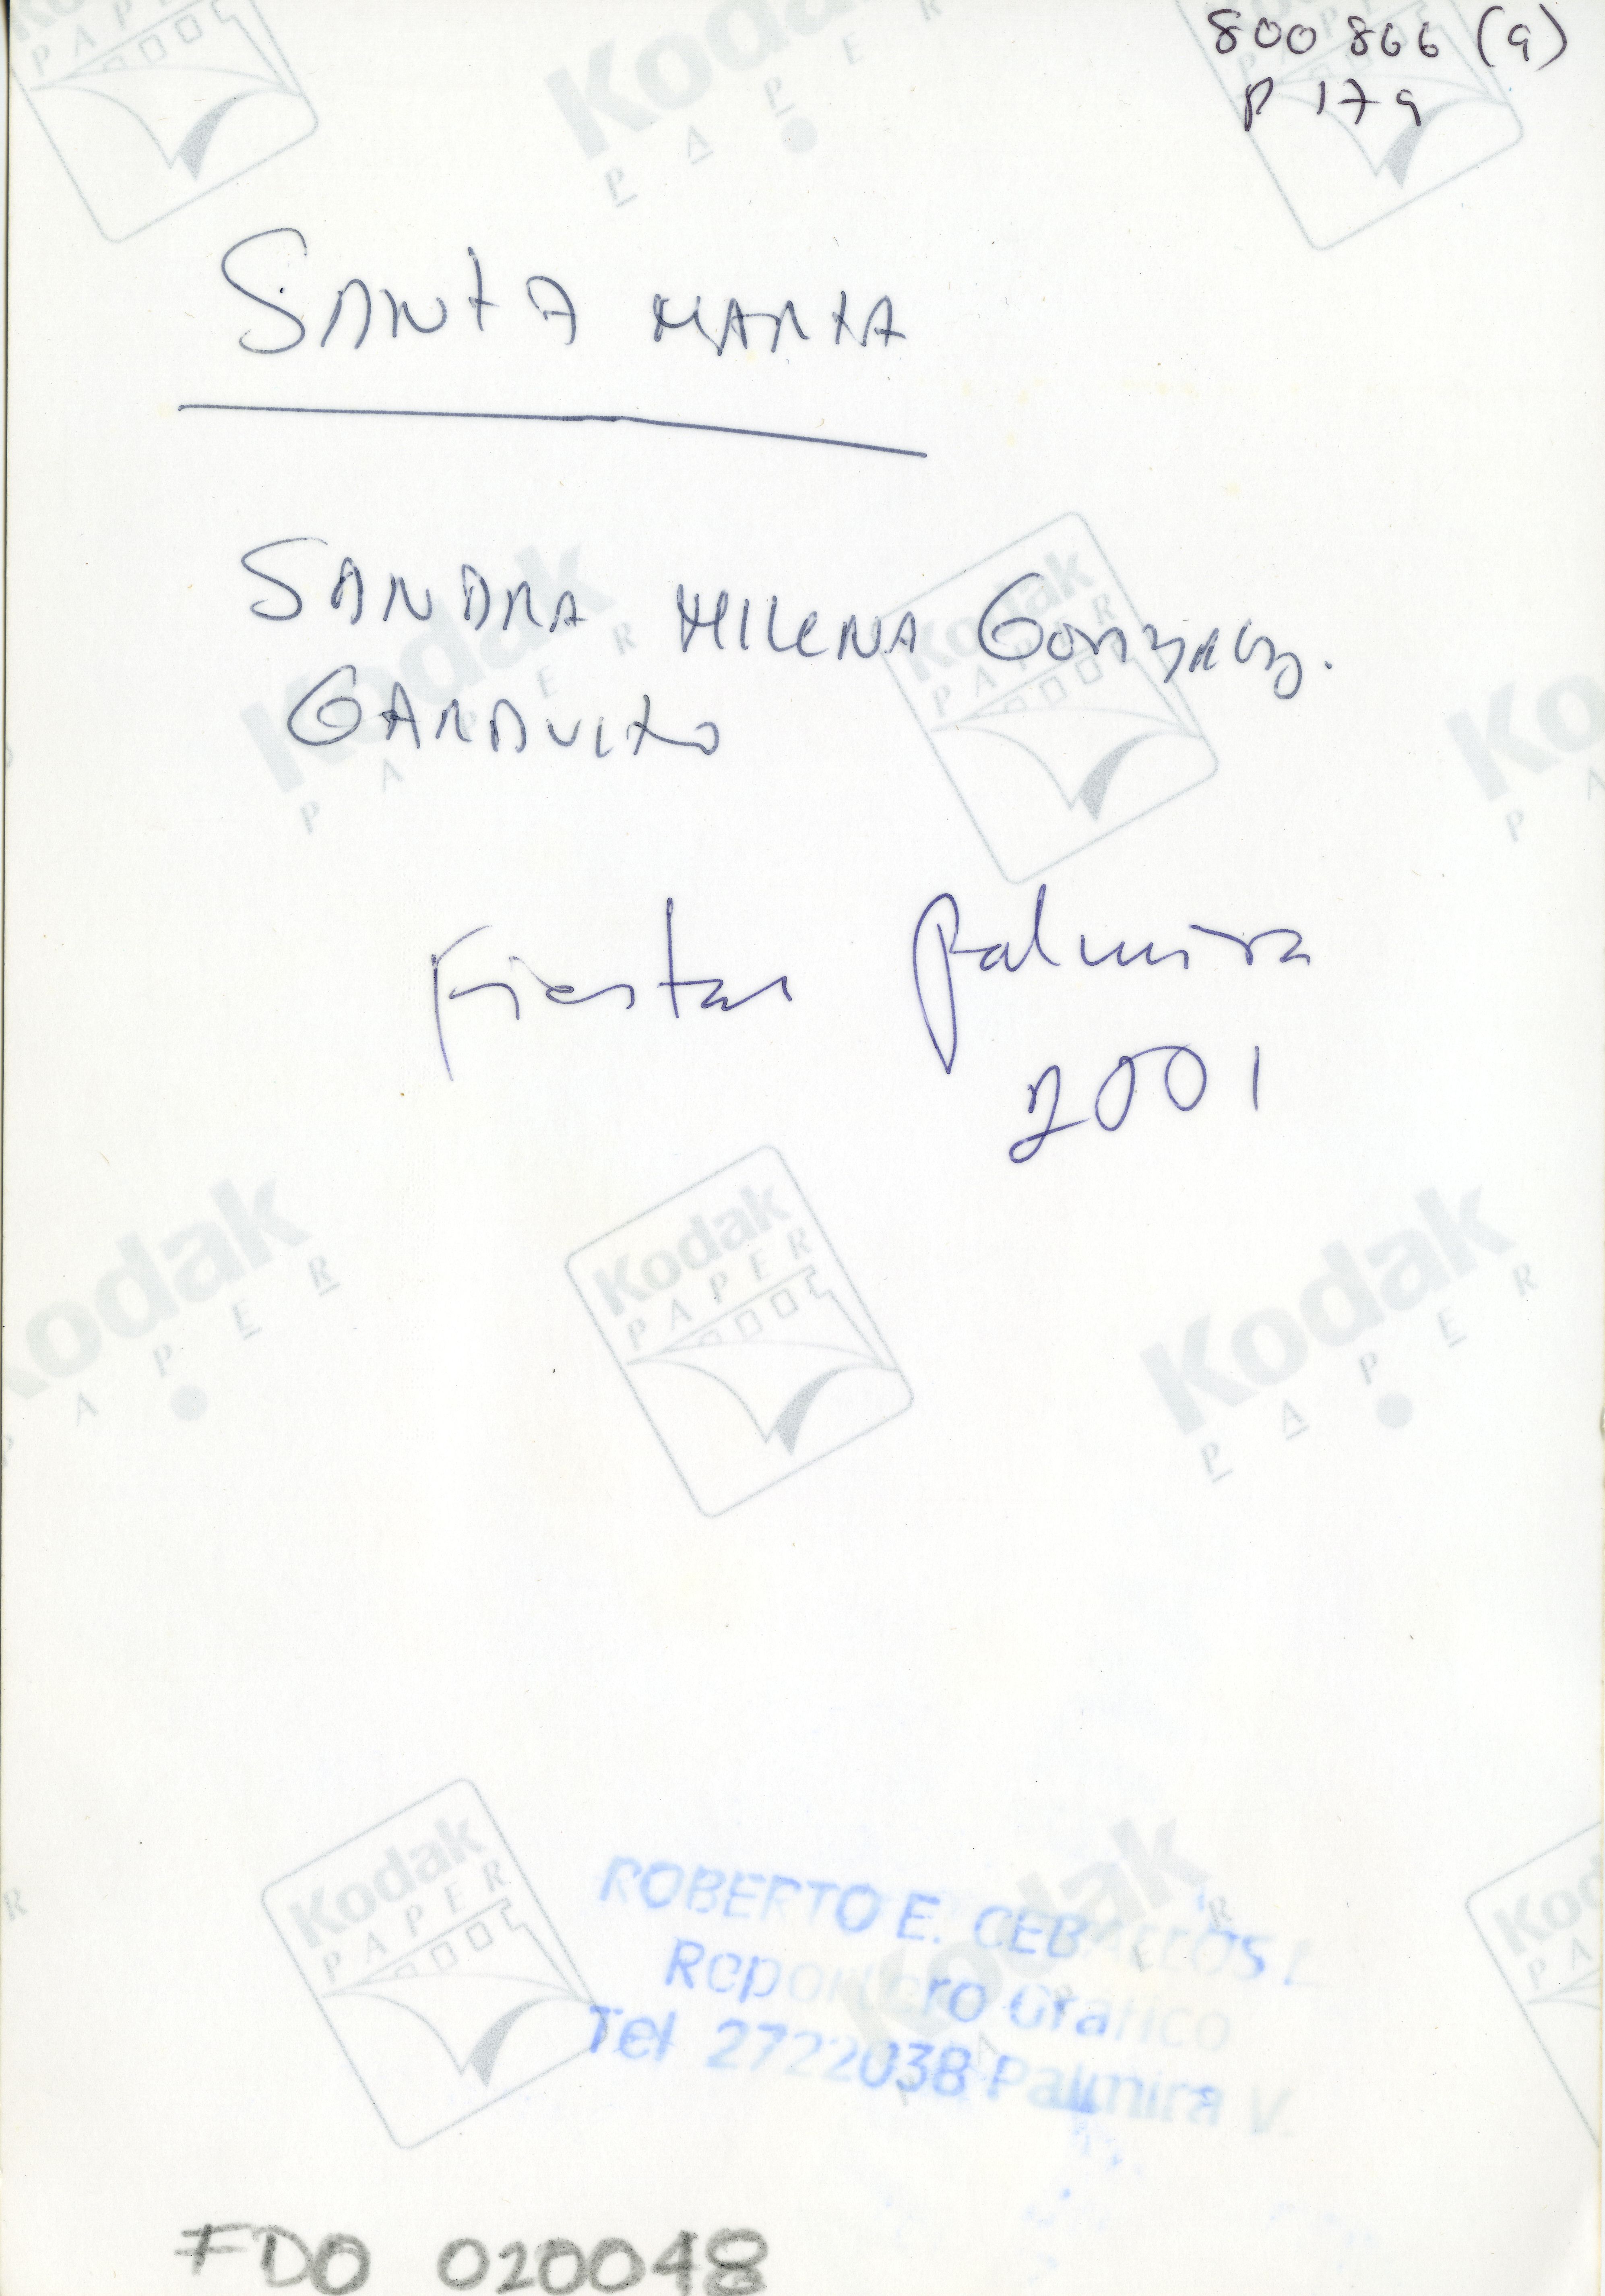 800866 (9)
P 179
SANTA MARTA
SANDRA MILENA GONZALEZ.
GARAVITO
Fiestas Palmira
2001
Kodak
PAPER
ROBERTO E. CEBALLOS L.
Reportero Gráfico
Tel 2722038 Palmira V.
FDO 020048